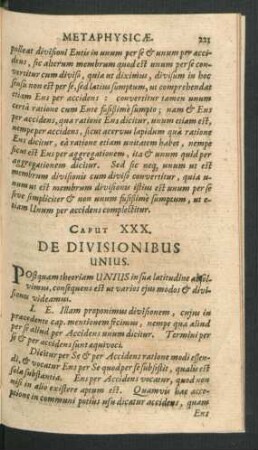 METAPHYSICÆ. 221
pellent divisioni Entis in unum per se & unum per acci-
dens, sic alterum membrum quod est unum per se con-
vertitur cum diviso, quia ut diximus, divisum in hoc
sensu non est per se, sed latius sumptum, ut comprehendat
etiam Ens per accidens: convertitur tamen unum
certâ ratione cum Ente fusissimè sumpto; nam & Ens
per accidens, qua ratione Ens dicitur, unum etiam est,
nempe per accidens, sicut acervus lapidum quâ ratione
Ens dicitur, eâ ratione etiam unitatem habet, nempe
sicut est Ens per aggregationem, ita & unum quid per
aggregationem dicitur. Sed sic neq, unum ut est
membrum divisionis cum diviso convertitur, quia u-
num ut est membrum divisionis istius est unum per se
sive simpliciter & non unum fusissimè sumptum, ut e-
tiam Unum per accidens complectitur.
CAPUT XXX.
DE DIVISIONIBUS
UNIUS.
POstquam theoriam UNIUS in suâ latitudine absol-
vimus, consequens est ut varios ejus modos & divi-
siones videamus.
I. E. Illam proponimus divisionem, cujus in
præcedente cap. mentionem fecimus, nempe quâ aliud
per se aliud per Accidens unum dicitur. Termini per
se & per accidens sunt æquivoci.
Dicitur per Se & per Accidens ratione modi essen-
di, & vocatur Ens per Se quod per se subsistit, qualis est
sola substantia. Ens per Accidens vocatur, quod non
nisi in alio existere aptum est. Quamvis hac acce-
ptione in communi potius usu dicatur accidens, quam
Ens